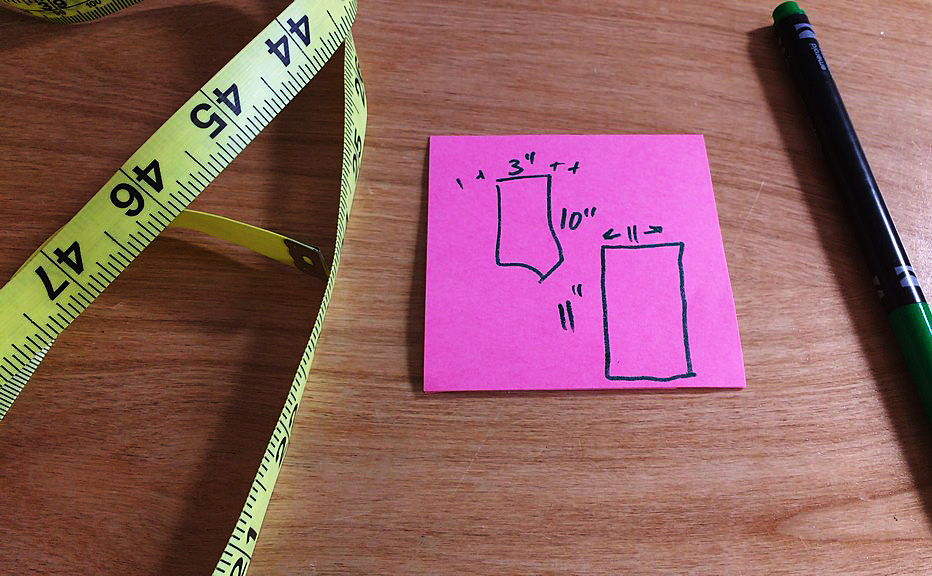 44
45
46
47
3"
10"
11
11"
emerald